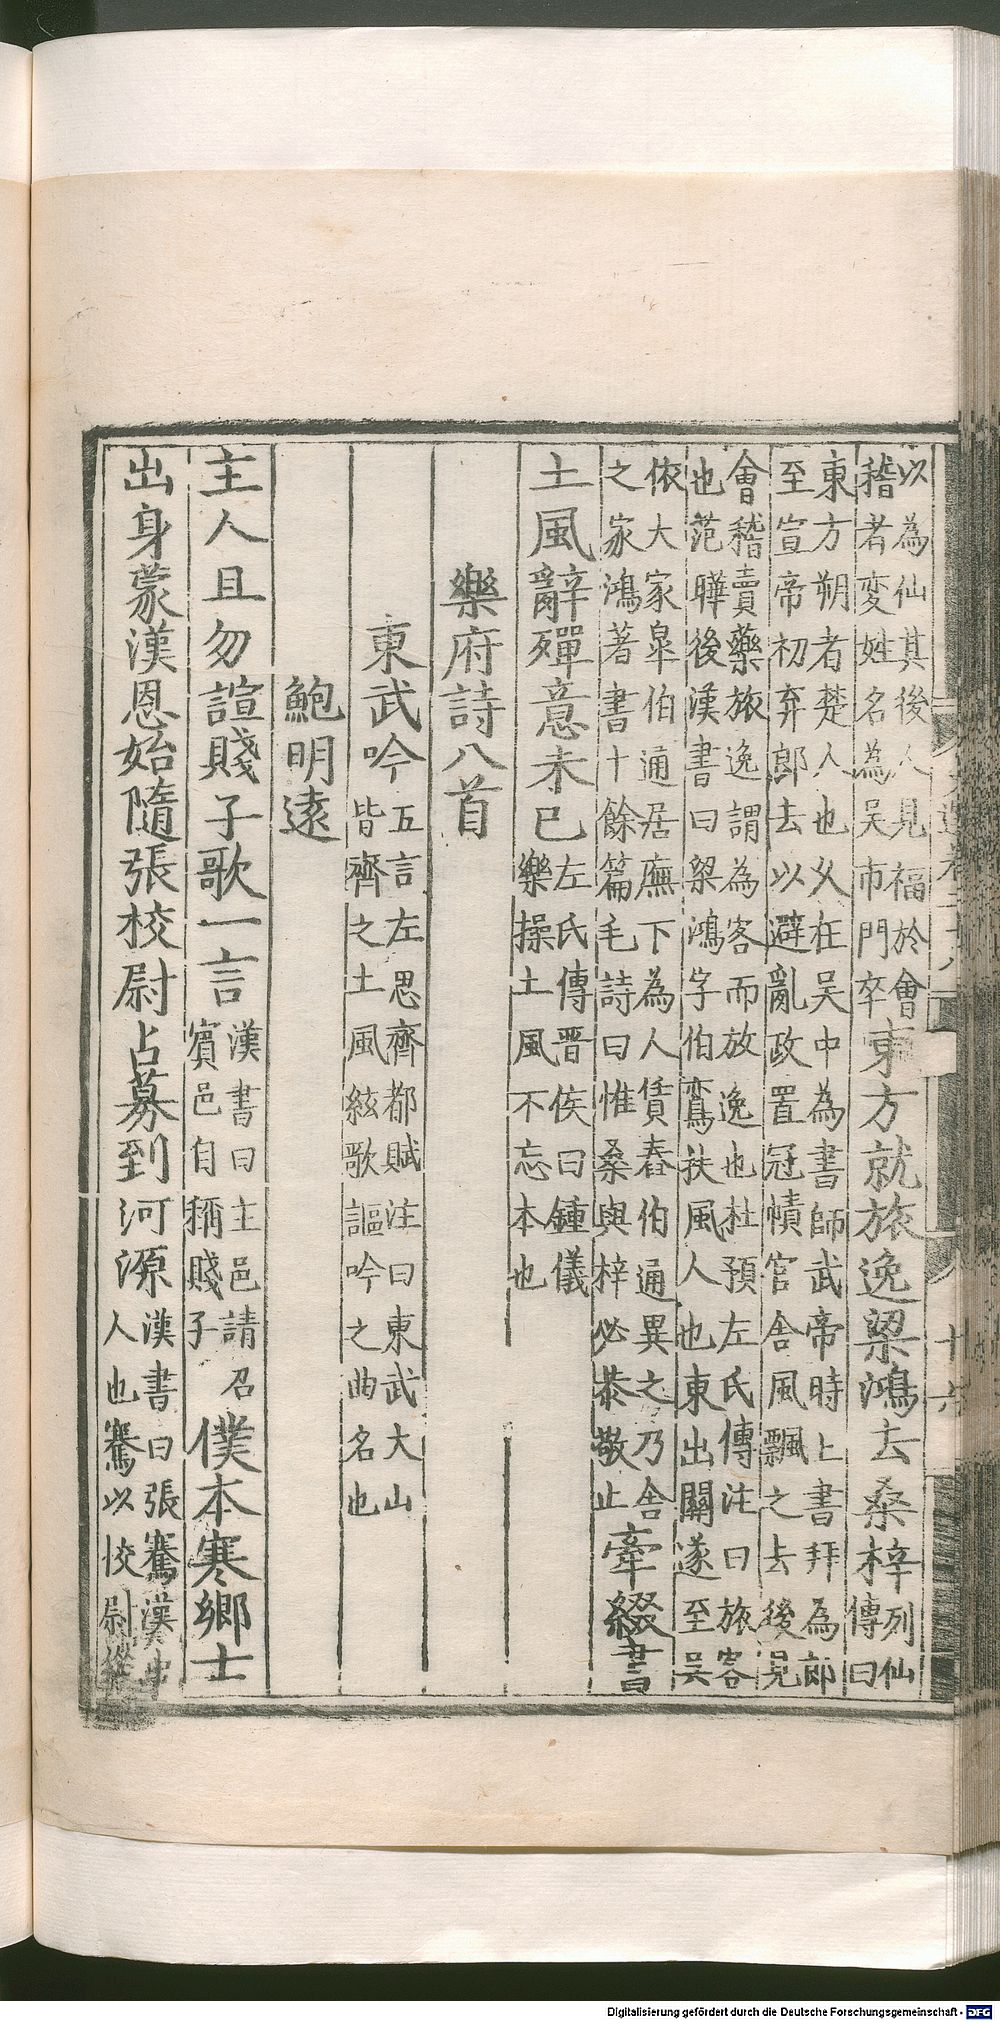 以為仙其後人見福於會
稽者変姓名為吳市門卒
東方就旅逸梁鴻去桑梓
列仙
傳曰
東方朔者楚人也父在吳中為書師武帝時上書拜為郎
至宣帝初弃郎去以避亂政置冠幘官舍風飄之去後見
會稽賣藥旅逸謂為客而放逸也杜預左氏傳注曰旅客
也范曄後漢書曰梁鴻字伯鸞扶風人也東出關遂至吳
依大家臯伯通居廡下為人賃舂伯通異之乃舍
之家鴻著書十餘篇毛詩曰惟桑與梓必恭敬止
牽綴書
土風辭殫意未已
左氏傳晋侯曰鍾儀
樂操土風不忘本也
樂府詩八首
東武吟
五言左思齊都賦注曰東武大山
皆齊之土風絃歌謳吟之曲名也
鮑明遠
主人且勿諠賤子歌一言
漢書曰主邑請召
賓邑自稱賤子
僕本寒鄉士
出身蒙漢恩始隨張校尉占募到河源
漢書曰張騫漢中
人也騫以校尉從
Digitalisierung gefördert durch die Deutsche Forschungsgemeinschaft - DFG